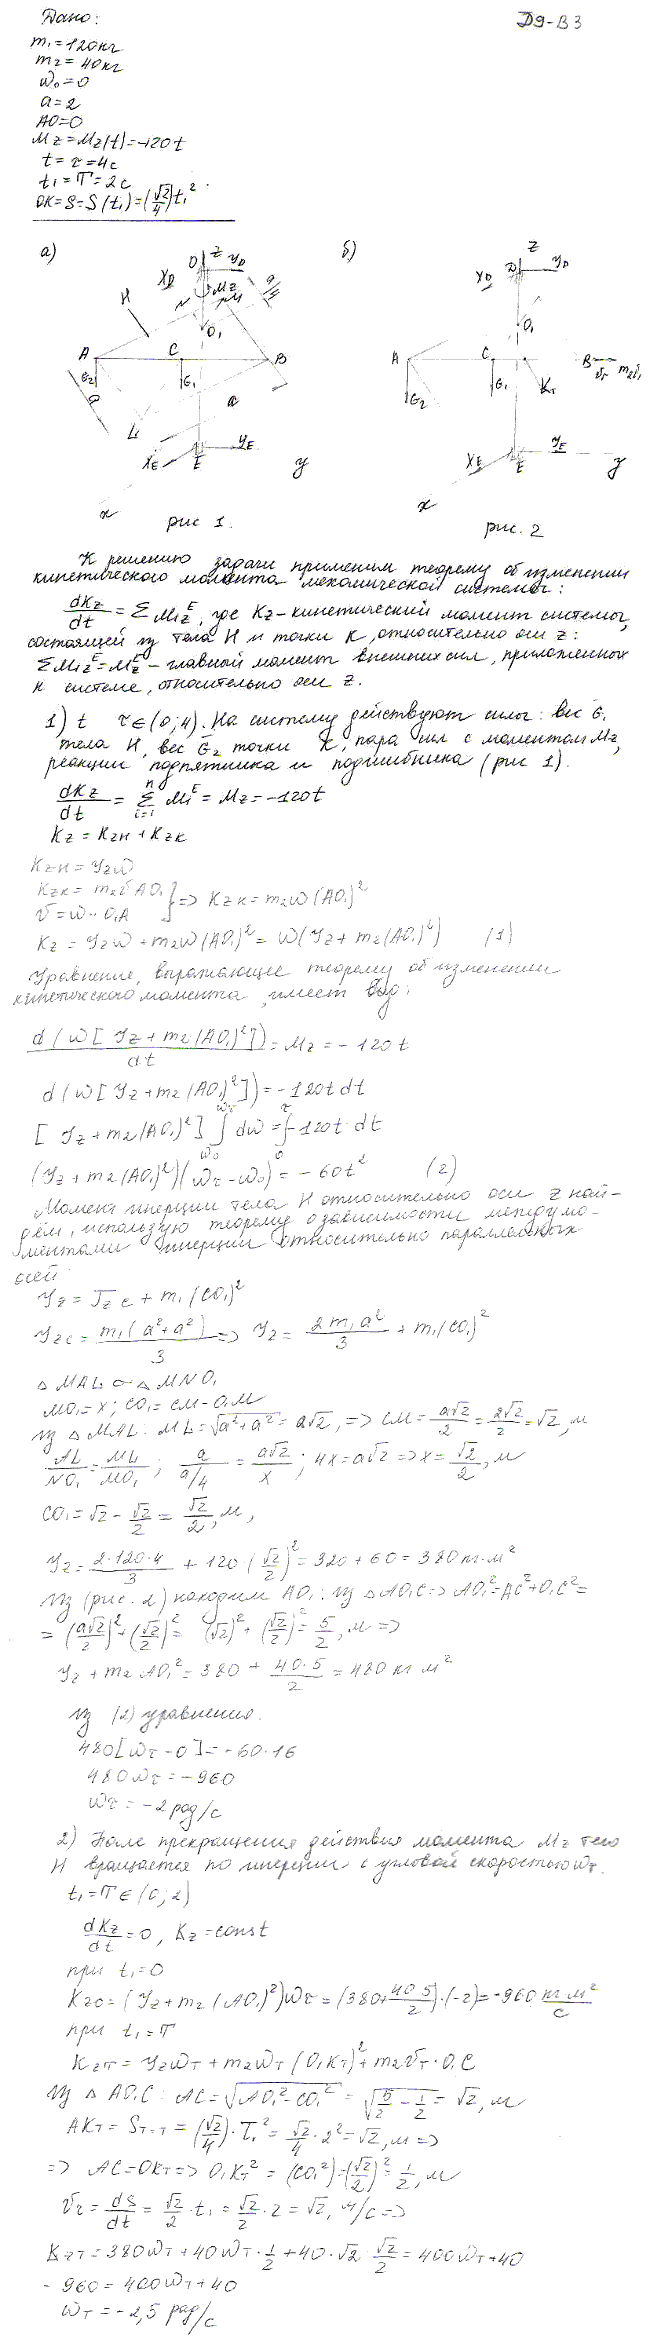 Дано:
Д9-В3
m₁=120кг
m₂=40кг
ω₀=0
a=2
AO=0
Mz=Mz(t)=-120t
t=τ=4с
t₁=T=2с
OK=S=S(t₁)=(√2/4)t₁²
а)
б)
рис 1.
рис. 2
К решению задачи применим теорему об изменении
кинетического момента механической системы:
dKz/dt=ΣMizᴱ, где Kz-кинетический момент системы,
состоящей из тела H и точки K, относительно оси z:
ΣMizᴱ=Mzᴱ - главный момент внешних сил, приложенных
к системе, относительно оси z.
1) t τ∈(0;4). На систему действуют силы: вес G₁
тела H, вес G₂ точки K, пара сил с моментом Mz,
реакции подпятника и подшибника (рис 1).
dKz/dt = Σ Miᴱ = Mz=-120t
Kz = Kzн + Kzк
Kzн = Jzω
Kzк = m₂υAO₁ } => Kzк = m₂ω(AO₁)²
υ=ω·O₁A
Kz = Jzω + m₂ω(AO₁)² = ω(Jz + m₂(AO₁)²) (1)
Уравнение, выражающее теорему об изменении
кинетического момента, имеет вид:
d(ω[Jz + m₂(AO₁)²])/dt = Mz = -120t
d(ω[Jz+m₂(AO₁)²])=-120t dt
[Jz+m₂(AO₁)²] ∫ dω = ∫-120t dt
(Jz + m₂(AO₁)²)(ωτ-ω₀) = -60t² (2)
Момент инерции тела H относительно оси z най-
дём, использую теорему о зависимости между мо-
ментами инерции относительно параллельных
осей
Jz = Jzc + m₁(CO₁)²
Jzc = m₁(a²+a²)/3 => Jz = 2m₁a²/3 + m₁(CO₁)²
△MAL ∽ △MNO₁
MO₁=x; CO₁=CM-O₁M
из △MAL: ML=√a²+a²=a√2, => CM=a√2/2=2√2/2=√2, м
AL/NO₁=ML/MO₁; a/a/4=a√2/x; 4x=a√2=>x=√2/2, м
CO₁=√2-√2/2=√2/2, м,
Jz=2·120·4/3 + 120·(√2/2)²=320+60=380кг·м²
Из (рис. 2) находим AO₁: из △AO₁C=> AO₁²=AC²+O₁C²=
=(a√2/2)²+(√2/2)²= (√2)²+(√2/2)²=5/2, м =>
Jz+m₂AO₁²=380+40·5/2=480кг м²
из (2) уравнения.
480[ωτ-0]=-60·16
480ωτ=-960
ωτ=-2рад/с
2) После прекращения действия момента Mz тело
H вращается по инерции с угловой скоростью ωτ.
t₁=T∈(0;2)
dKz/dt=0, Kz=const
при t₁=0
Kzo=(Jz+m₂(AO₁)²)ωτ=(380+40·5/2)·(-2)=-960 кг м²/с
при t₁=T
KzT=JzωT+m₂ωT(O₁KT)²+m₂υT·O₁C
из △AO₁C: AC=√AO₁²-CO₁²=√5/2-1/2=√2, м
AKT=St=T=(√2/4)·T₁²=√2/4·2²=√2, м =>
=> AC=OKT=> O₁KT²=(CO₁²)=(√2/2)²=1/2, м
υτ=ds/dt=√2/2·t₁=√2/2·2=√2, м/с =>
KzT=380ωT+40ωT·1/2+40·√2·√2/2=400ωT+40
-960=400ωT+40
ωT=-2,5рад/с